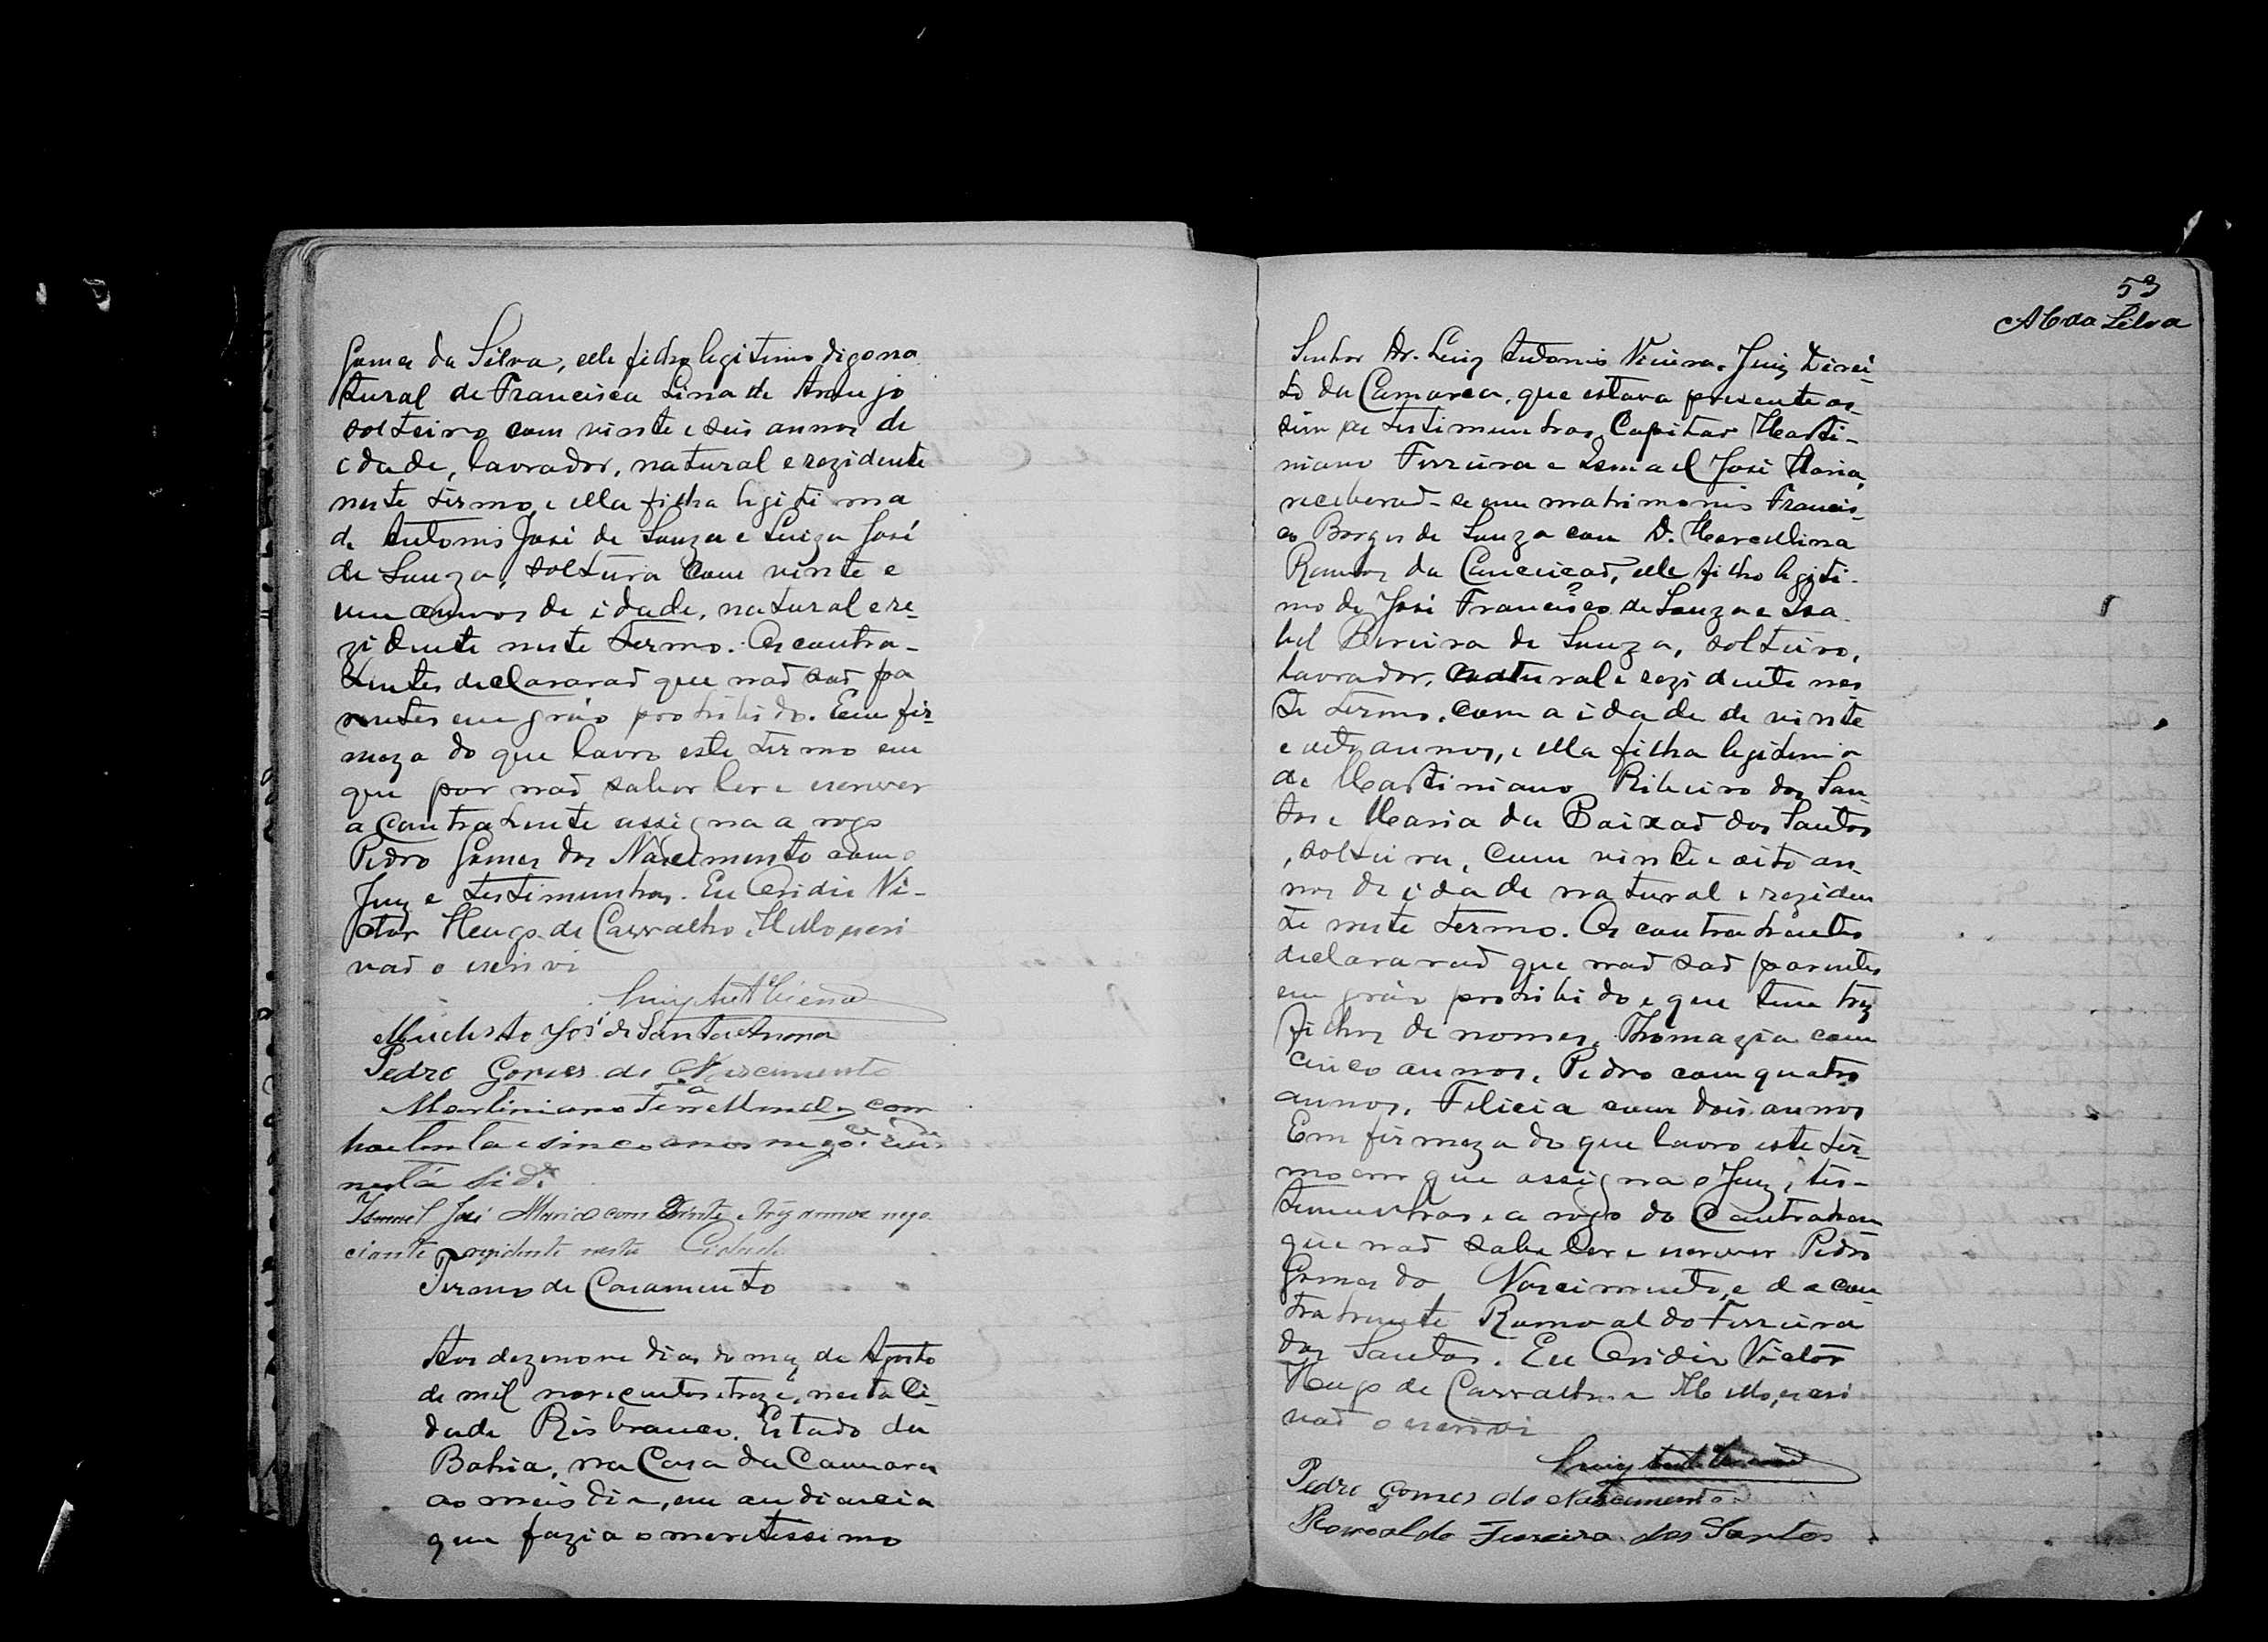 Gomes da Silva, elle filho legitimo digo na
tural de Francisca Lina de Araujo
solteiro com vinte e seis annos de
idade, lavrador, natural e rezidente
neste termo, e ella filha legitima
de Antonio José de Souza e Luiza José
de Souza, solteira com vinte e
um annos de idade, natural e re-
zidente neste termo. Os contra-
hentes declararaõ que naõ saõ pa
rentes em gráo prohibido. Em fir-
meza do que lavro este termo em
que por naõ saber ler e escrever
a contrahente assigna a rogo
Pedro Gomes do Nascimento com o
Juiz e testimunhas. Eu Ovidio Vi-
ctor Hugo de Carvalho e Mello, escri
vaõ o escrevi
Luiz Antº Vieira
Modesto José de Santa Anna
Pedro Gomes do Nascimento
Martiniano
negoce
nesta Sidᵉ
Ismael José Maria com vinte e trez annos nego
ciante rezidente nesta Cidade
Termo de Casamento
Aos dezenove dias do mez de Agosto
de mil novecentos e treze, nesta Ci-
dade Rio branco, Estado da
Bahia, na Casa da Camara
ao meio dia, em audiencia
que fazia o meretissimo
53
Senhor Dr. Luiz Antonio Vieira, Juiz Direi-
to da Camarca, que estava presente as-
sim as testimunhas Capitaõ Marti-
niano Ferreira e Ismael José Maria,
receberaõ-se em matrimonio Francis-
co Borges de Souza com D. Marcellina
Ramos da Conceicaõ, elle filho legiti-
mo de José Francisco de Souza e Isa
bel Pereira de Souza, solteiro,
lavrador, natural e rezidente nes
te termo, com a idade de vinte
e oito annos, e ella filha legitima
de Martiniano Ribeiro dos San-
tos e Maria da Paixaõ dos Santos
, solteira, com vinte e oito an-
nos de idade natural e reziden
te neste termo. Os contrahentes
declararaõ que naõ saõ parentes
em gráo prohibido e que tem trez
filhos de nomes, Thomazia com
cinco annos, Pedro com quatro
annos, Felicia com dois annos
Em firmeza do que lavro este ter-
mo em que assigna o Juiz, tes-
temunhas e a rogo do Contrahen
que naõ sabe ler e escrever Pedro
Gomes do Nascimento, e da con-
trahente Romoaldo Ferreira
dos Santos. Eu Ovidio Victor
Hugo de Carvalho e Mello, escri
vaõ o escrevi
Luiz Antº Vieira
Pedro Gomes do Nascimento
Romoaldo Ferreira dos Santos